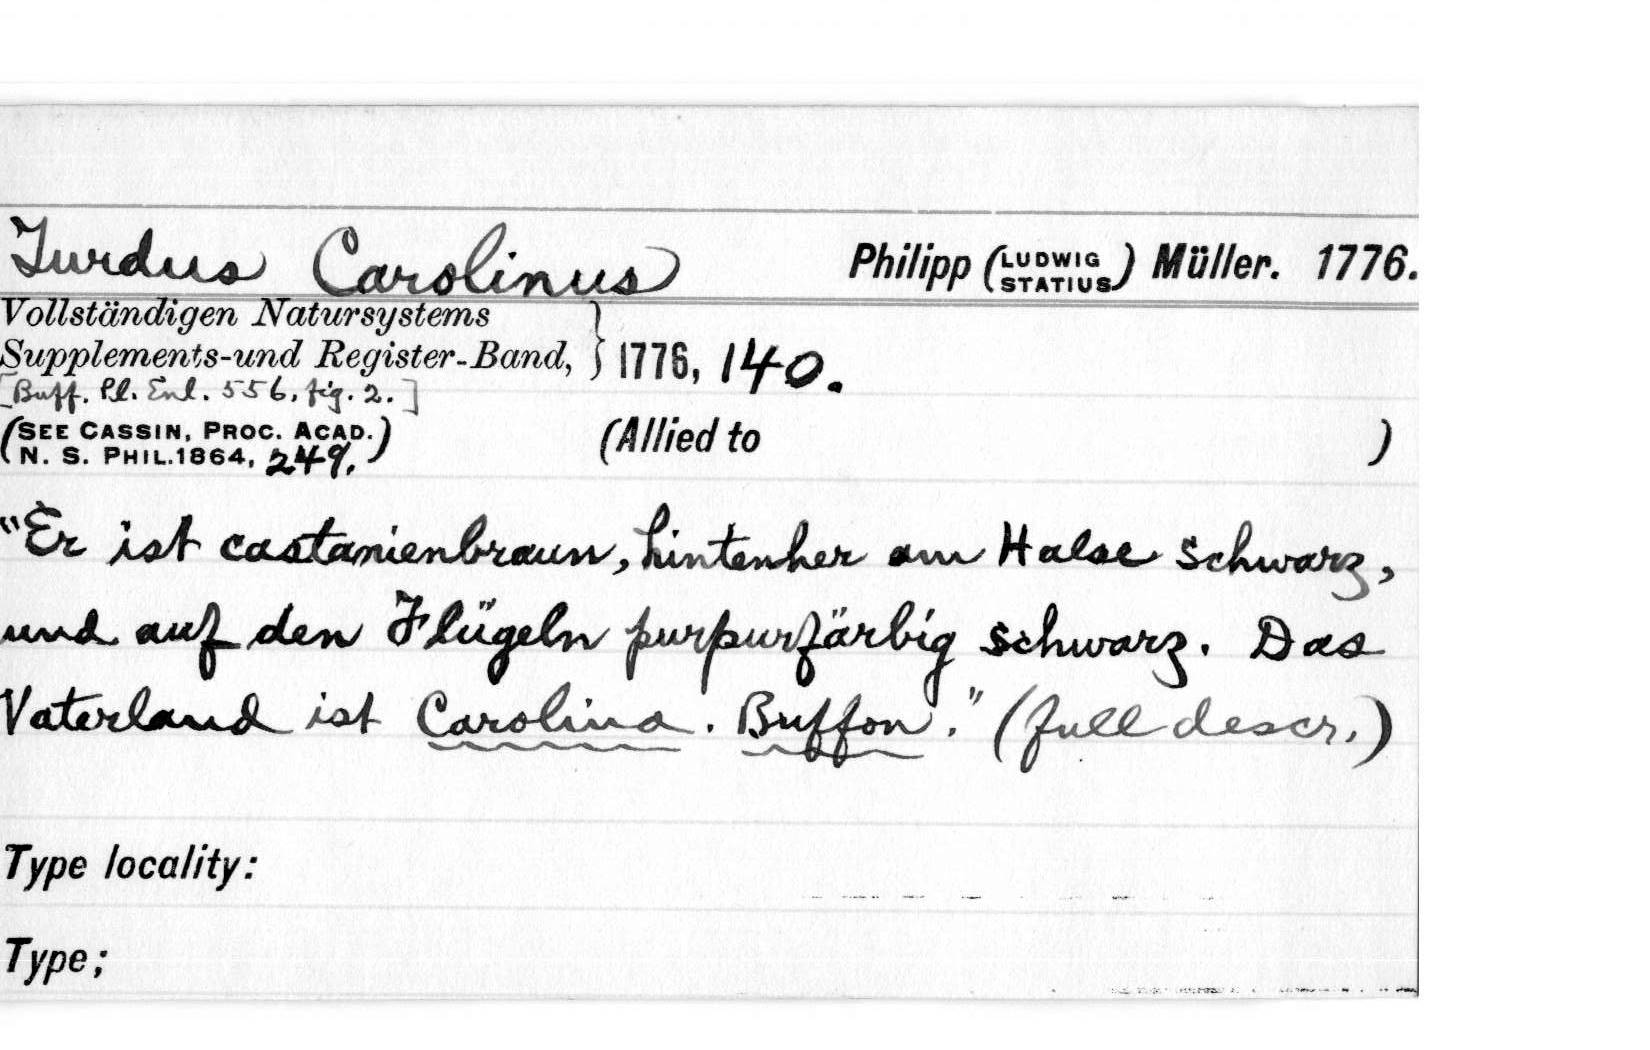 Turdus Carolinus Philipp (LUDWIG STATIUS) Müller. 1776.
Vollständigen Natursystems
Supplements-und Register-Band, } 1776, 140.
[Buff. Pl. Enl. 556, fig. 2.]
(SEE CASSIN, PROC. ACAD. (Allied to )
N. S. PHIL. 1864, 249.)
"Er ist castanienbraun, hintenher am Halse schwarz,
und auf den Flügeln purpurfärbig schwarz. Das
Vaterland ist Carolina. Buffon." (full descr.)
Type locality:
Type;